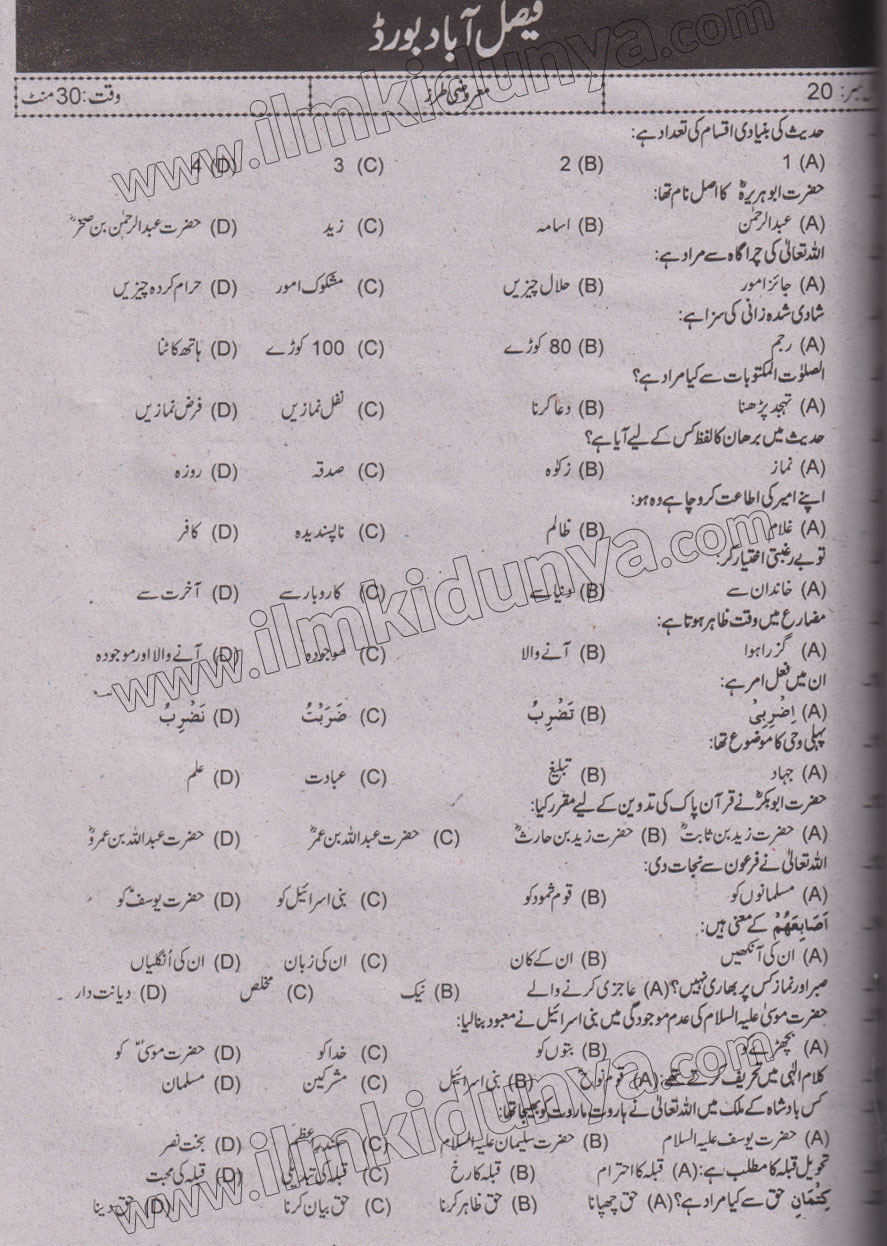 فیصل آباد بورڈ
20 معروضی طرز وقت: 30 منٹ
حدیث کی بنیادی اقسام کی تعداد ہے:
(A) 1 (B) 2 (C) 3 (D) 4
حضرت ابو ہریرہؓ کا اصل نام تھا:
(A) عبدالرحمٰن (B) اسامہ (C) زید (D) حضرت عبدالرحمٰن بن صخرؓ
اللہ تعالیٰ کی چراگاہ سے مراد ہے:
(A) جائز امور (B) حلال چیزیں (C) مشکوک امور (D) حرام کردہ چیزیں
شادی شدہ زانی کی سزا ہے:
(A) رجم (B) 80 کوڑے (C) 100 کوڑے (D) ہاتھ کاٹنا
الصلوٰت المکتوبات سے کیا مراد ہے؟
(A) تہجد پڑھنا (B) دعا کرنا (C) نفل نمازیں (D) فرض نمازیں
حدیث میں برھان کا لفظ کس کے لیے آیا ہے؟
(A) نماز (B) زکوٰہ (C) صدقہ (D) روزہ
اپنے امیر کی اطاعت کرو چاہے وہ ہو:
(A) غلام (B) ظالم (C) ناپسندیدہ (D) کافر
تو بے رغبتی اختیار کر:
(A) خاندان سے (B) دنیا سے (C) کاروبار سے (D) آخرت سے
مضارع میں وقت ظاہر ہوتا ہے:
(A) گزرا ہوا (B) آنے والا (C) موجودہ (D) آنے والا اور موجودہ
ان میں فعل امر ہے:
(A) اِضْرِبِیْ (B) تَضْرِبُ (C) ضَرَبْتُ (D) نَضْرِبُ
پہلی وحی کا موضوع تھا:
(A) جہاد (B) تبلیغ (C) عبادت (D) علم
حضرت ابوبکرؓ نے قرآن پاک کی تدوین کے لیے مقرر کیا:
(A) حضرت زید بن ثابتؓ (B) حضرت زید بن حارثؓ (C) حضرت عبداللہ بن عمرؓ (D) حضرت عبداللہ بن عمروؓ
اللہ تعالیٰ نے فرعون سے نجات دی:
(A) مسلمانوں کو (B) قوم ثمود کو (C) بنی اسرائیل کو (D) حضرت یوسفؑ کو
اَصَابِعَهُمْ کے معنی ہیں:
(A) ان کی آنکھیں (B) ان کے کان (C) ان کی زبان (D) ان کی اُنگلیاں
صبر اور نماز کس پر بھاری نہیں؟ (A) عاجزی کرنے والے (B) نیک (C) مخلص (D) دیانت دار
حضرت موسیٰ علیہ السلام کی عدم موجودگی میں بنی اسرائیل نے معبود بنا لیا:
(A) بچھڑے کو (B) بتوں کو (C) خدا کو (D) حضرت موسیٰؑ کو
کلام الٰہی میں تحریف کرتے تھے: (A) قوم نوحؑ (B) بنی اسرائیل (C) مشرکین (D) مسلمان
کس بادشاہ کے ملک میں اللہ تعالیٰ نے ہاروت ماروت کو بھیجا تھا:
(A) حضرت یوسف علیہ السلام (B) حضرت سلیمان علیہ السلام (C) سکندر اعظم (D) بخت نصر
تحویل قبلہ کا مطلب ہے: (A) قبلہ کا احترام (B) قبلہ کا رخ (C) قبلہ کی تبدیلی (D) قبلہ کی محبت
کِتْمَانِ حق سے کیا مراد ہے؟ (A) حق چھپانا (B) حق ظاہر کرنا (C) حق بیان کرنا (D) حق دینا
www.ilmkidunya.com
www.ilmkidunya.com
www.ilmkidunya.com